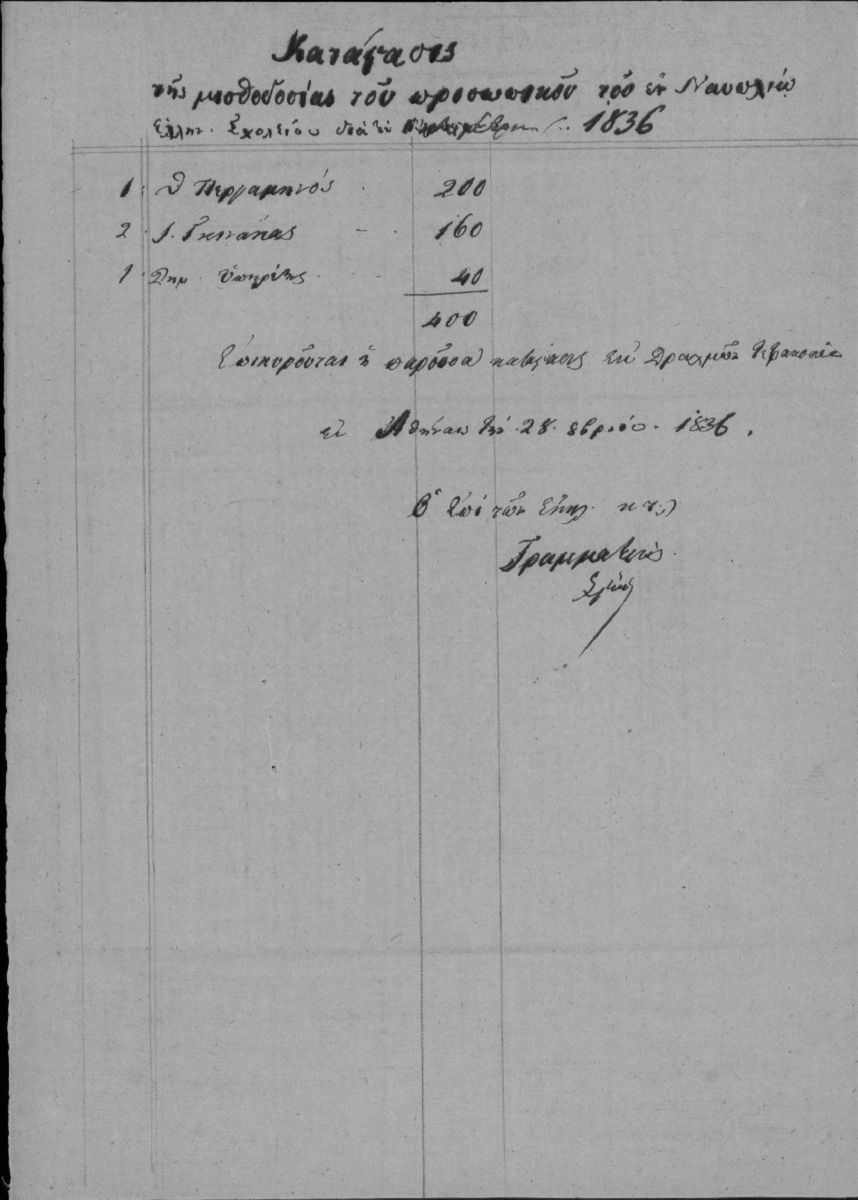 Κατάστασις
τῆς μισθοδοσίας τοῦ προσωπικοῦ τοῦ ἐν Ναυπλίῳ
Ἑλλην. Σχολείου διὰ τὸν 1836
1 Θ Περγαμηνός 200
2 160
1 Δημ. Ὑπηρέτης 40
400
Ἐπικυροῦται ἡ παροῦσα κατάστασις Δραχμῶν τετρακοσίων
ἐν Ἀθήναις τὴν 28 8βρίου 1836.
Ὁ ἐπὶ τῶν Ἐκκλ. κτλ
Γραμματεὺς